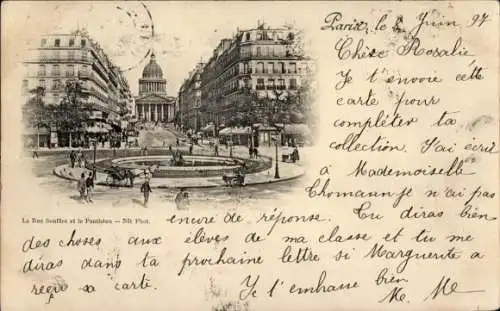 Paris, le 2 Juin 97
Chère Rosalie
Je t'envoie cette
carte pour
compléter ta
collection. J'ai écrit
à Mademoiselle
Thomann je n'ai pas
encore de réponse. Tu diras bien
des choses aux elèves de ma classe et tu me
diras dans ta prochaine lettre si Marguerite a
reçu sa carte. Je t'embrasse bien
M. M
La Rue Soufflot et le Panthéon — ND Phot.